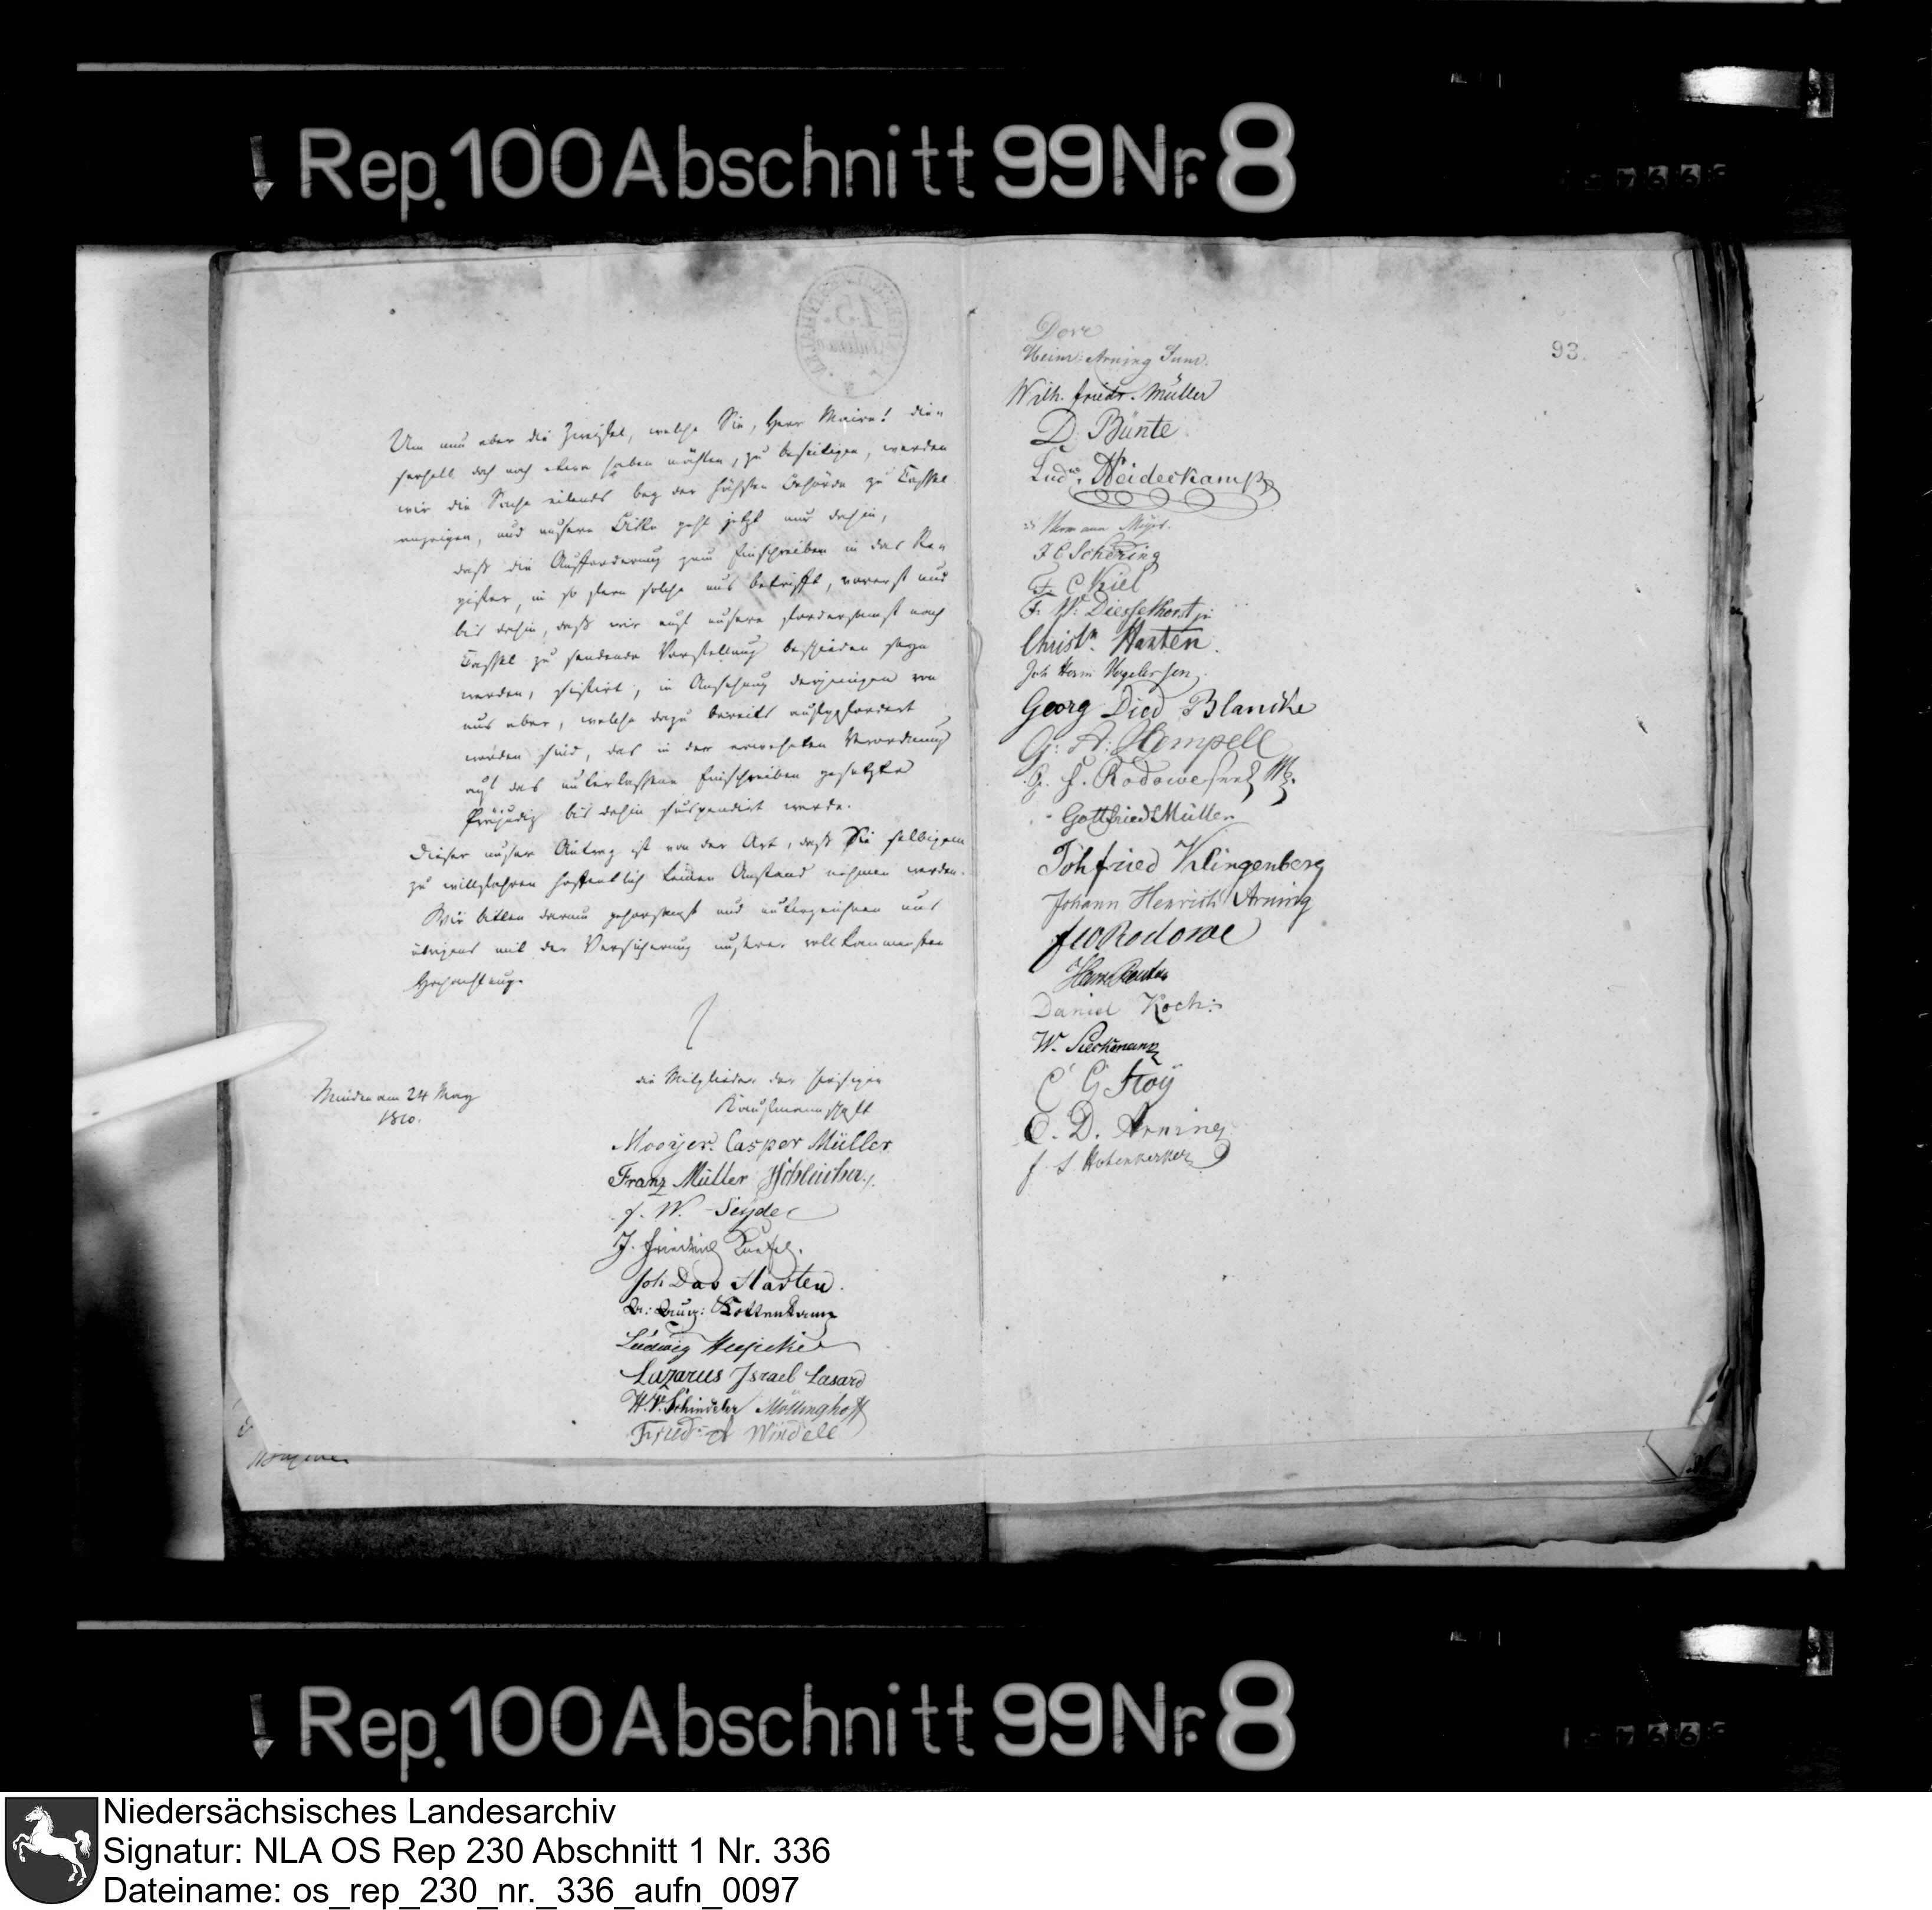 Rep. 100 Abschnitt 99 Nr. 8
Um nun aber die Zweifel, welche Sie, Herr Maire! die=
serhalb doch noch etwa haben möchten, zu beseitigen, werden
wir die Sache eilends bey der höchsten Behörde zu Cassel
anzeigen, und unsere Bitte geht jetzt nur dahin,
daß die Aufforderung zum Einschreiben in das Re=
gister, in so fern solche uns betrifft, vorerst und
bis dahin, daß wir auf unsere fordersamst nach
Cassel zu sendende Vorstellung beschieden seyn
werden, sistirt, in Ansehung derjenigen von
uns aber, welche dazu bereits aufgefordert
worden sind, das in der erwehnten Verordnung
auf das unterlassene Einschreiben gesetzte
Präjudiz bis dahin suspendirt werde.
Dieser unser Antrag ist von der Art, daß Sie selbigem
zu willfahren hoffentlich keinen Anstand nehmen werden.
Wir bitten darum gehorsamst und unterzeichnen uns
übrigens mit der Versicherung unserer vollkommensten
Hochachtung.
Minden am 24 May
1810.
die Mitglieder der hiesigen
Kaufmannschaft
Mooyer. Casper Müller
Franz Müller
F. W. Seydel
J. Friedrich
Joh Dav Harten.
Kottenkamp
Ludwig
Lazarus Israel Lasard
Schindeler Möllinghoff
Fried: A Windell
93.
Dove
Heinr: Arning Junr.
Wilh. Friedr. Müller
D. Bünte
Ludw. Heideckamp
Hermann Meyer.
F C Schering
F. C Kiel
F. W: Diesselhorst jr
Christn. Harten.
Joh Herm Vogelersen
Georg Died Blancke
G: A: Hempell
G. F. Rodowe
Gottfried Müller
Johfried Klingenberg
Johann Henrich Arning
F W Rodowe
Daniel Koch:
W. Sieckmann
C G Floÿ
C. D. Arning
Rep. 100 Abschnitt 99 Nr. 8
Niedersächsisches Landesarchiv
Signatur: NLA OS Rep 230 Abschnitt 1 Nr. 336
Dateiname: os_rep_230_nr._336_aufn_0097